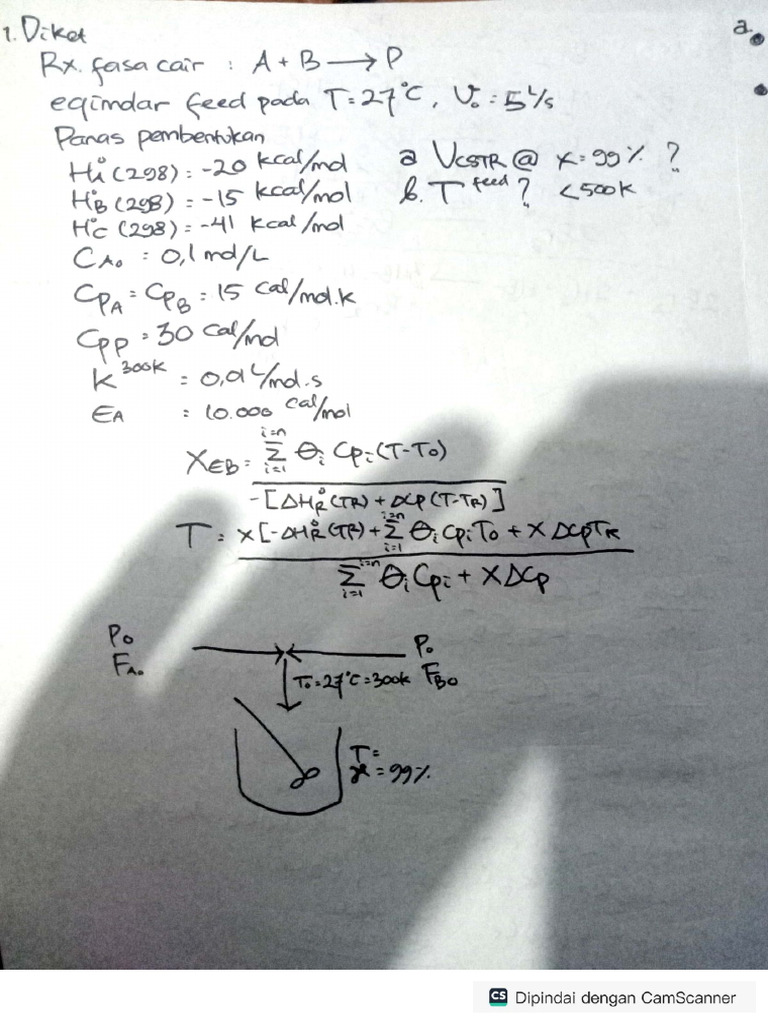 1. Diket
a.
Rx. fasa cair : A + B ⟶ P
eqimolar feed pada T = 27°C, V₀ = 5 L/s
Panas pembentukan
H°A (298) = -20 kcal/mol
a VCSTR @ x = 99% ?
H°B (298) = -15 kcal/mol
b. T feed ? < 500K
H°C (298) = -41 kcal/mol
CA₀ = 0,1 mol/L
CpA = CpB = 15 cal/mol.K
CpP = 30 cal/mol
K 300K = 0,01 L/mol.s
EA = 10.000 cal/mol
XEB = Σ(i=1, i=n) θi Cpi (T-T₀) / -[ΔH°R(TR) + ΔCp (T-TR)]
T = X[-ΔH°R(TR) + Σ(i=1, i=n) θi Cpi T₀ + X ΔCp TR / Σ(i=1, i=n) θi Cpi + X ΔCp
P₀ P₀
FA₀ FB₀
T₀ = 27°C = 300K
T =
x = 99%
CS Dipindai dengan CamScanner